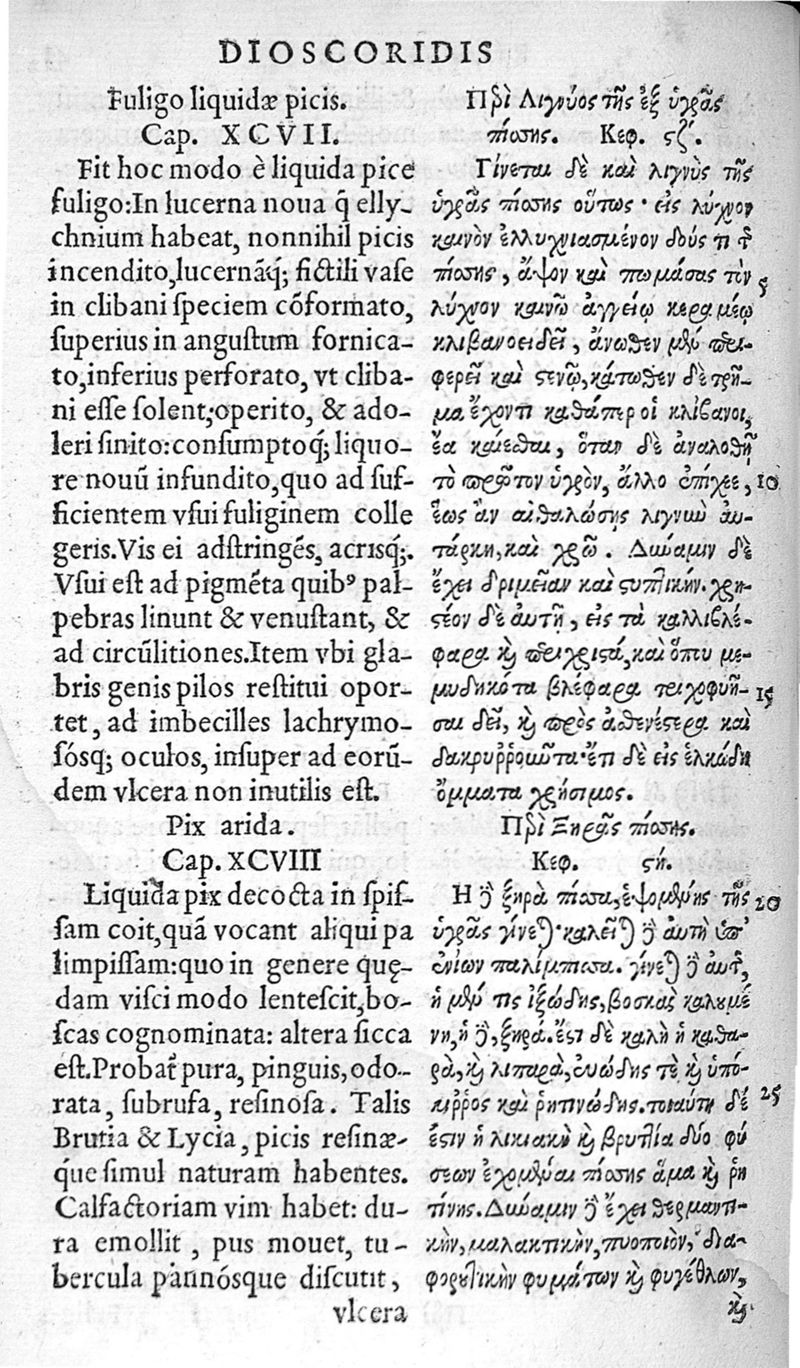 DIOSCORIDIS
Fuligo liquidæ picis.
Cap. XCVII.
Fit hoc modo è liquida pice
fuligo:In lucerna noua q̃ elly-
chnium habeat, nonnihil picis
incendito,lucernāq; fictili vase
in clibani speciem cōformato,
superius in angustum fornica-
to,inferius perforato, vt cliba-
ni esse solent;operito, & ado-
leri sinito:consumptoq́; liquo-
re nouū infundito,quo ad suf-
ficientem vsui fuliginem colle
geris.Vis ei adstringēs, acrisq́;.
Vsui est ad pigmēta quibꝰ pal-
pebras linunt & venustant, &
ad circūlitiones.Item vbi gla-
bris genis pilos restitui opor-
tet, ad imbecilles lachrymo-
sósq; oculos, insuper ad eorū-
dem vlcera non inutilis est.
Pix arida.
Cap. XCVIII
Liquida pix decocta in spis-
sam coit,quā vocant aliqui pa
limpissam:quo in genere quę-
dam visci modo lentescit,bo-
scas cognominata: altera sicca
est.Probat᷑ pura, pinguis, odo-
rata, subrufa, resinosa. Talis
Brutia & Lycia, picis resinæ-
q́ue simul naturam habentes.
Calfactoriam vim habet: du-
ra emollit, pus mouet, tu-
bercula pannósque discutit,
vlcera
Περὶ Λιγνύος τῆς ἐξ ὑγρᾶς
πίσσης. Κεφ. ϛζ.
Γίνεται δὲ καὶ λιγνὺς τῆς
ὑγρᾶς πίσσης οὕτως· εἰς λύχνον
καινὸν ἐλλυχνιασμένον δούς τι τῆς
πίσσης, ἅψον καὶ πωμάσας τὸν 5
λύχνον καινῷ ἀγγείῳ κεραμέῳ
κλιβανοειδεῖ, ἄνωθεν μὲν περι-
φερεῖ καὶ στενῷ,κάτωθεν δὲ τρῆ-
μα ἔχοντι καθάπερ οἱ κλίβανοι,
ἔα καίεσθαι, ὅταν δὲ ἀναλοθῇ
τὸ πρῶτον ὑγρὸν, ἄλλο ἐπίχεε, 10
ἕως ἂν αἰθαλώσῃς λιγνὺν αὐ-
τάρκη,καὶ χρῶ. Δύναμιν δὲ
ἔχει δριμεῖαν καὶ στυπτικήν.χρη-
στέον δὲ αὐτῇ, εἰς τὰ καλλιβλέ-
φαρα καὶ περίχριστα,καὶ ὅπου με-
μυδηκότα βλέφαρα τριχοφυῆ- 15
σαι δεῖ, καὶ πρὸς ἀσθενέστερα καὶ
δακρυῤῥοοῦντα·ἔτι δὲ εἰς ἑλκώδη
ὄμματα χρήσιμος.
Περὶ Ξηρᾶς πίσσης.
Κεφ. ϛή.
Η δὲ ξηρὰ πίσσα,ἑψομένης τῆς 20
ὑγρᾶς γίνεται·καλεῖται δὲ αὐτὴ ὑπ᾽
ἐνίων παλίμπισσα. γίνεται δὲ αὐτῆς,
ἡ μέν τις ἰξώδης,βοσκὰς καλουμέ
νη,ἡ δὲ,ξηρά.ἔστι δὲ καλὴ ἡ καθα-
ρὰ,καὶ λιπαρὰ,εὐώδης τὲ καὶ ὑπό-
κιῤῥος καὶ ῥητινώδης.τοιαύτη δέ 25
ἐστιν ἡ λικιακὴ καὶ βρυτλία δύο φύ
σεων ἐχόμεναι πίσσης ἅμα καὶ ῥη
τίνης.Δύναμιν δὲ ἔχει θερμαντι-
κὴν,μαλακτικὴν,πυοποιὸν, δια-
φορητικὴν φυμάτων καὶ φυγέθλων,
καὶ